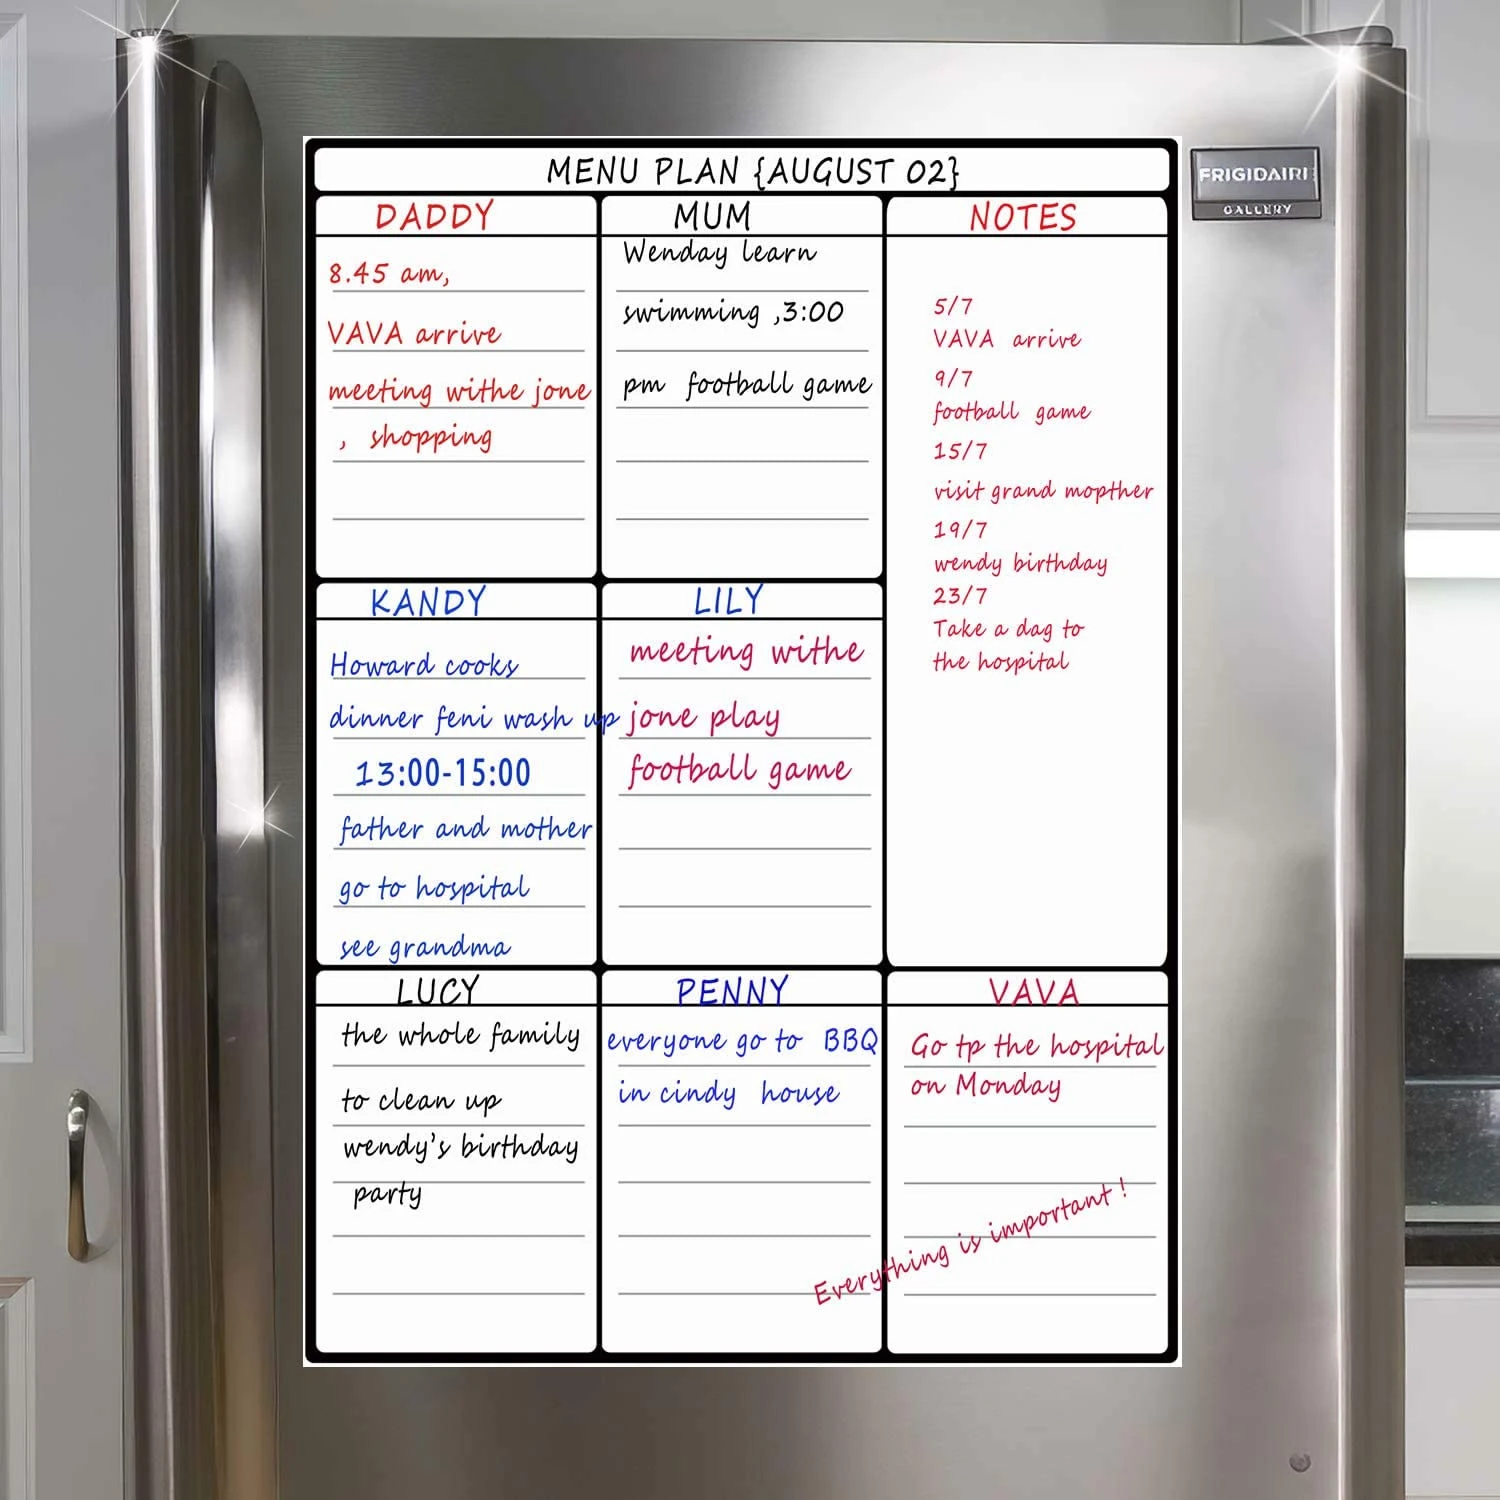 MENU PLAN {AUGUST 02}
DADDY
8.45 am,
VAVA arrive
meeting withe jone
, shopping
MUM
Wenday learn
swimming ,3:00
pm football game
NOTES
5/7
VAVA arrive
9/7
football game
15/7
visit grand mopther
19/7
wendy birthday
23/7
Take a dag to
the hospital
KANDY
Howard cooks
dinner feni wash up
13:00-15:00
father and mother
go to hospital
see grandma
LILY
meeting withe
jone play
football game
LUCY
the whole family
to clean up
wendy's birthday
party
PENNY
everyone go to BBQ
in cindy house
VAVA
Go tp the hospital
on Monday
Everything is important !
FRIGIDAIRE
GALLERY